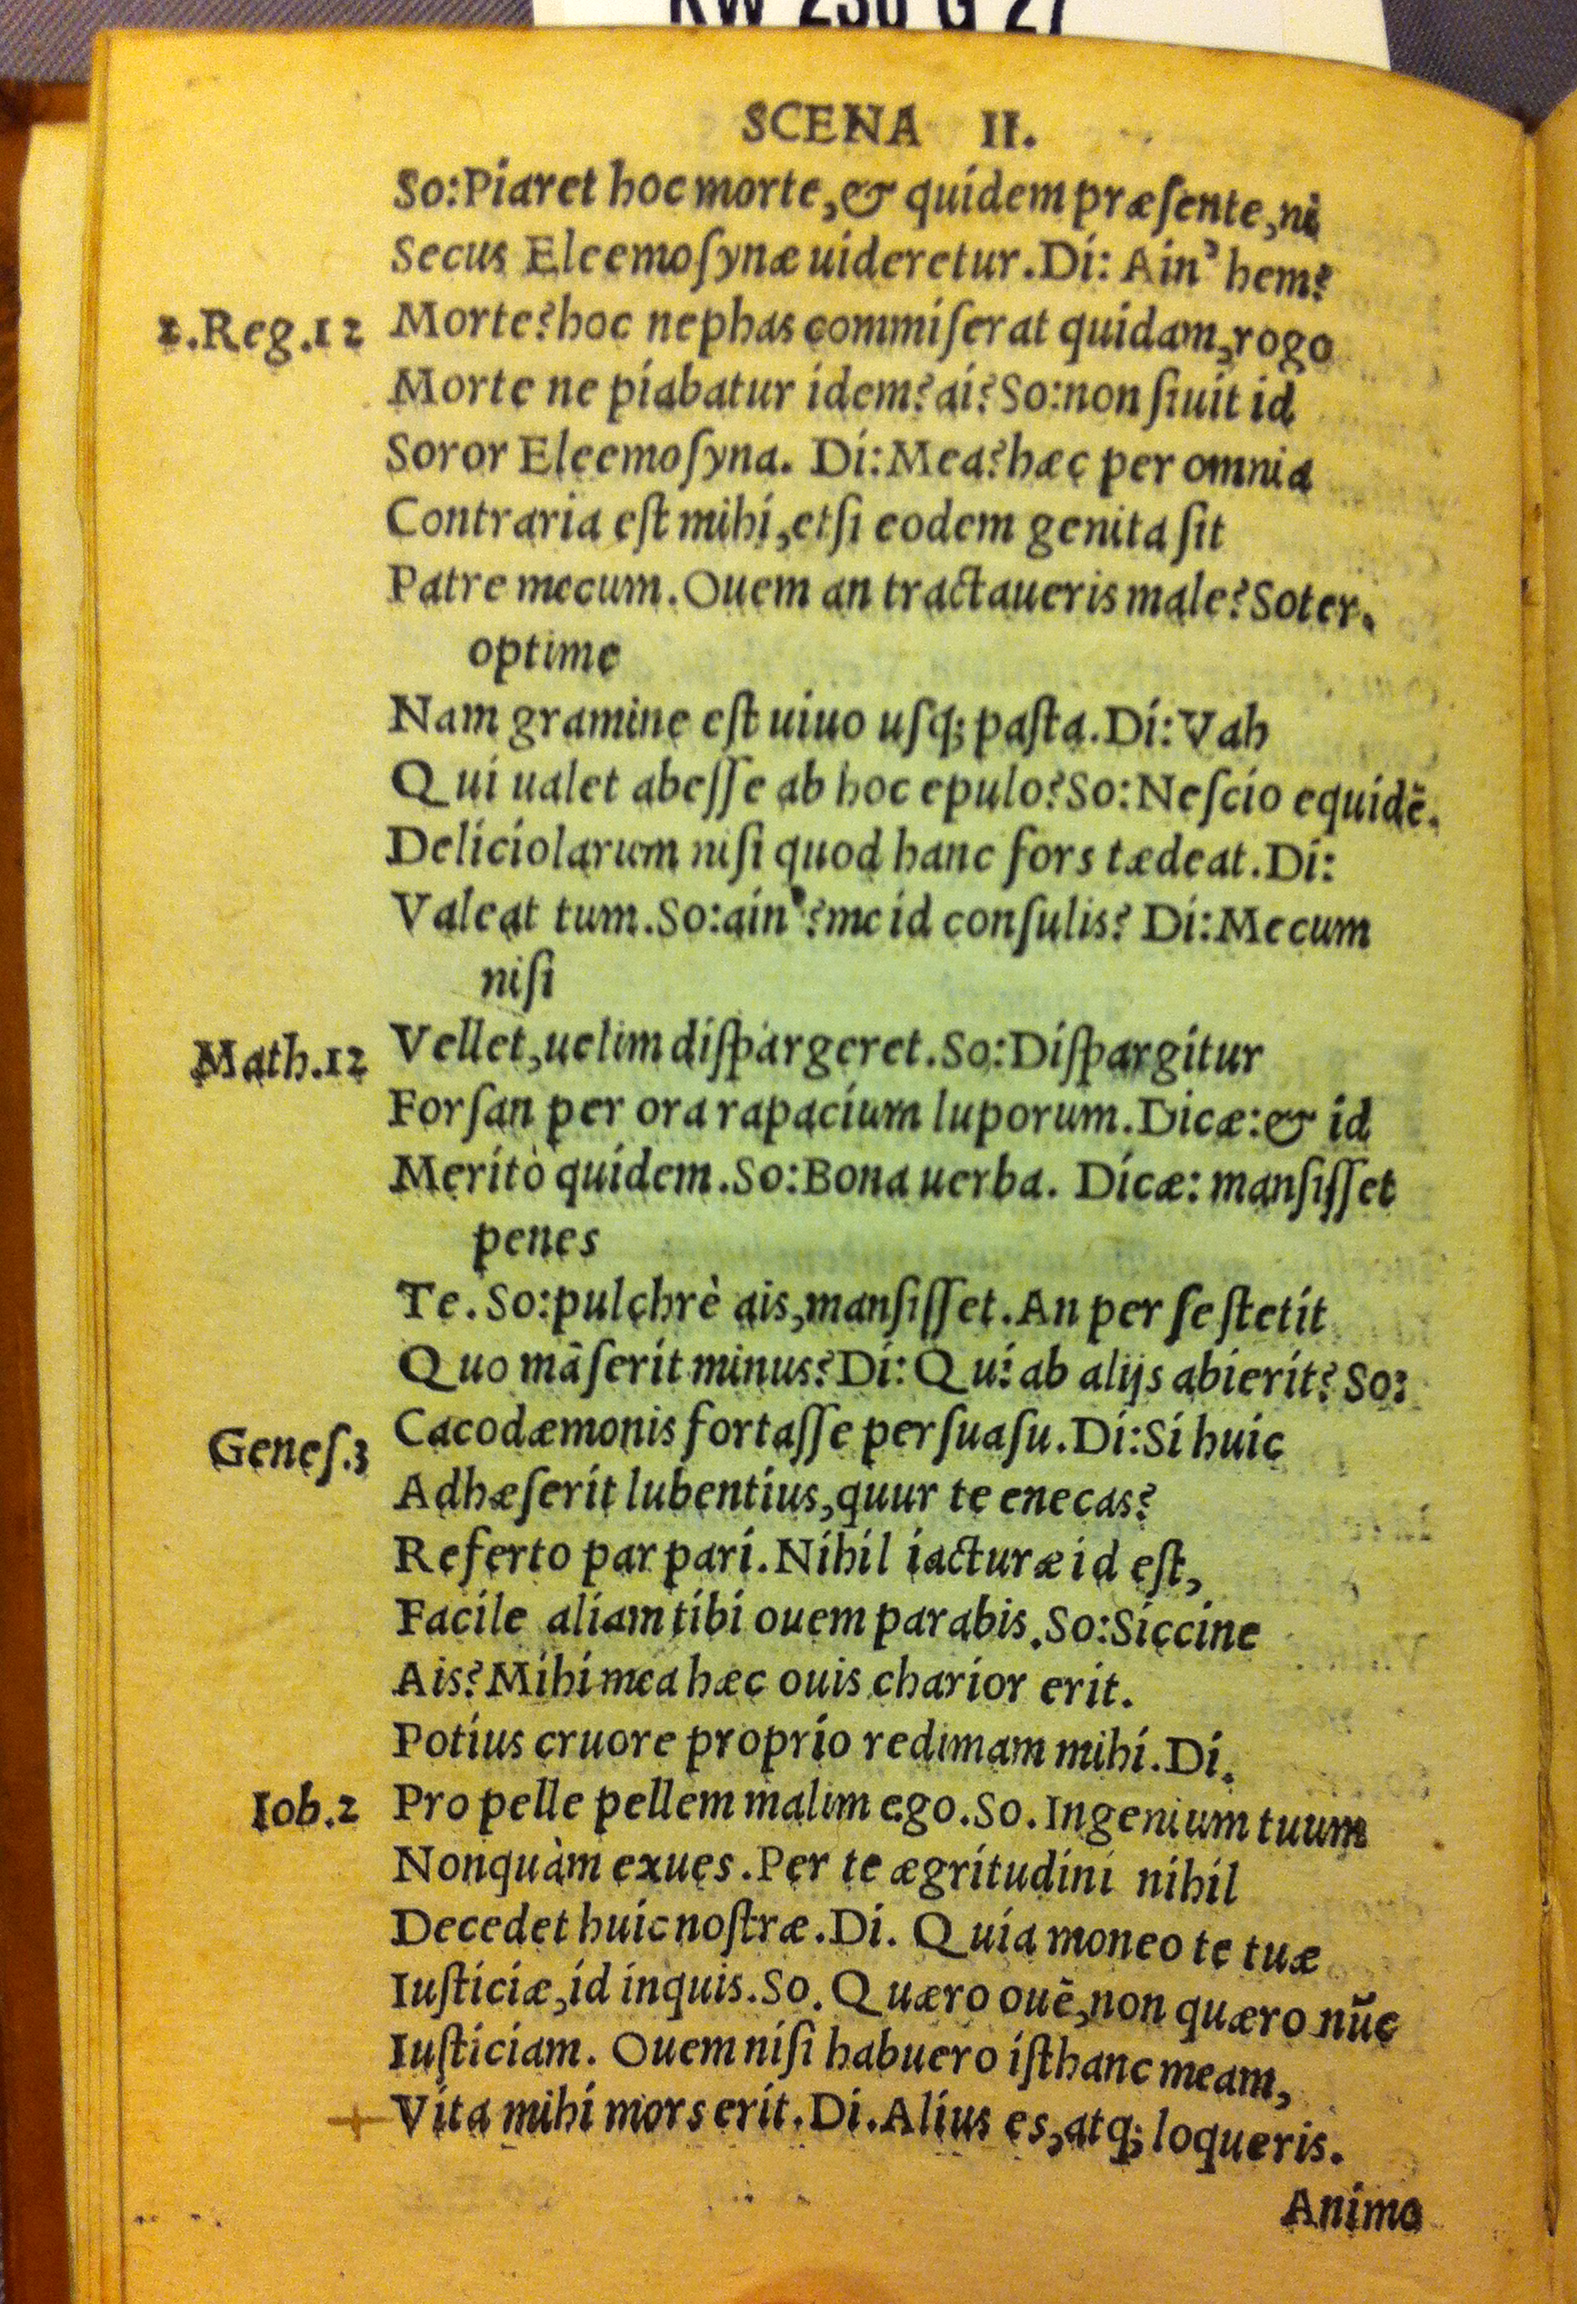 KW 236 G 27
SCENA II.
So:Piaret hoc morte,& quidem præſente,ni
Secus Eleemoſynæ uideretur.Di: Ain' hem?
2.Reg.12 Morte?hoc nephas commiſerat quidam,rogo
Morte ne piabatur idem?ai?So:non ſiuit id
Soror Eleemoſyna. Di:Mea?hæc per omnia
Contraria eſt mihi,etſi eodem genita ſit
Patre mecum.Ouem an tractaueris male?Soter.
optime
Nam gramine eſt uiuo uſq; paſta.Di:Vah
Qui ualet abeſſe ab hoc epulo?So:Neſcio equidē.
Deliciolarum niſi quod hanc fors tædeat.Di:
Valeat tum.So:ain'?me id conſulis? Di:Mecum
niſi
Math.12 Vellet,uelim diſpargeret.So:Diſpargitur
Forſan per ora rapacium luporum.Dicæ:& id
Meritò quidem.So:Bona uerba. Dicæ: manſiſſet
penes
Te.So:pulchrè ais,manſiſſet.An per ſe ſtetit
Quo māſerit minus?Di:Qui ab alijs abierit?So:
Geneſ.3 Cacodæmonis fortaſſe perſuaſu.Di:Si huic
Adhæſerit lubentius,quur te enecas?
Referto par pari.Nihil iacturæ id eſt,
Facile aliam tibi ouem parabis.So:Siccine
Ais?Mihi mea hæc ouis charior erit.
Potius cruore proprio redimam mihi.Di.
Iob.2 Pro pelle pellem malim ego.So.Ingenium tuum
Nonquàm exues.Per te ægritudini nihil
Decedet huic noſtræ.Di. Quia moneo te tuæ
Iuſticiæ,id inquis.So.Quæro ouē,non quæro nūc
Iuſticiam. Ouem niſi habuero iſthanc meam,
Vita mihi mors erit.Di.Alius es,atq; loqueris.
Animo